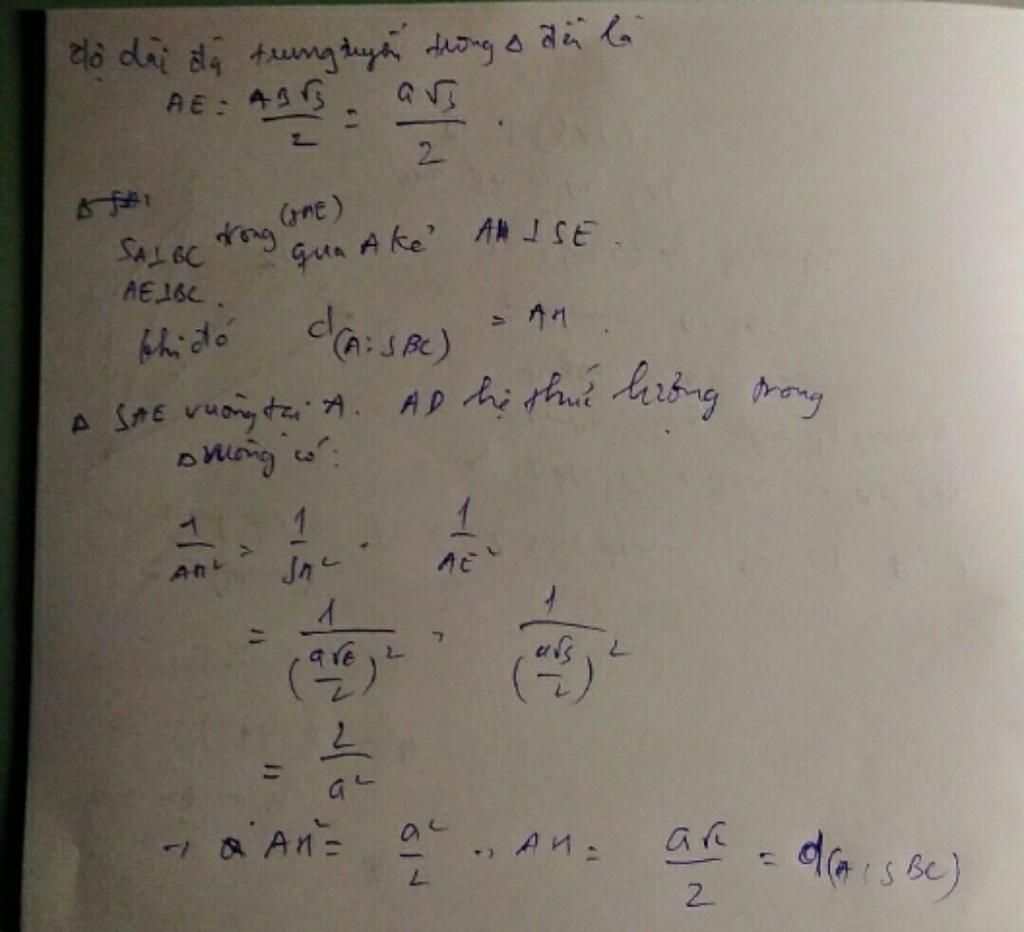 độ dài đg trung tuyến trong Δ đều là
AE = AB√3/2 = a√3/2 .
SA⊥BC trong (SAE) qua A kẻ AH ⊥ SE .
AE⊥BC .
khi đó d(A; SBC) = AH .
Δ SAE vuông tại A. AD hệ thức lượng trong
Δ vuông có :
1/AH² = 1/SA² + 1/AE²
= 1/(a√6/2)² + 1/(a√3/2)²
= 2/a²
→ AH² = a²/2 → AH = a√2/2 = d(A; SBC)